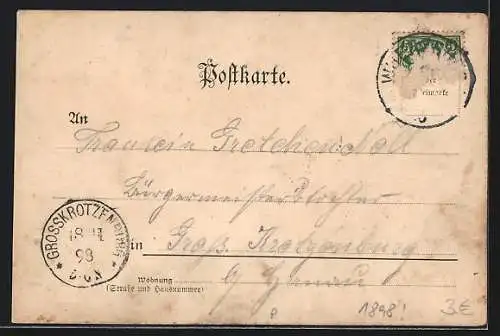 Postkarte.
An
Fräulein Gretchen Noll
Bürgermeisters Tochter
in Groß Krotzenburg
b/ Hanau
Wohnung
(Straße und Hausnummer)
GROSSKROTZENBURG
98
1898!
3€